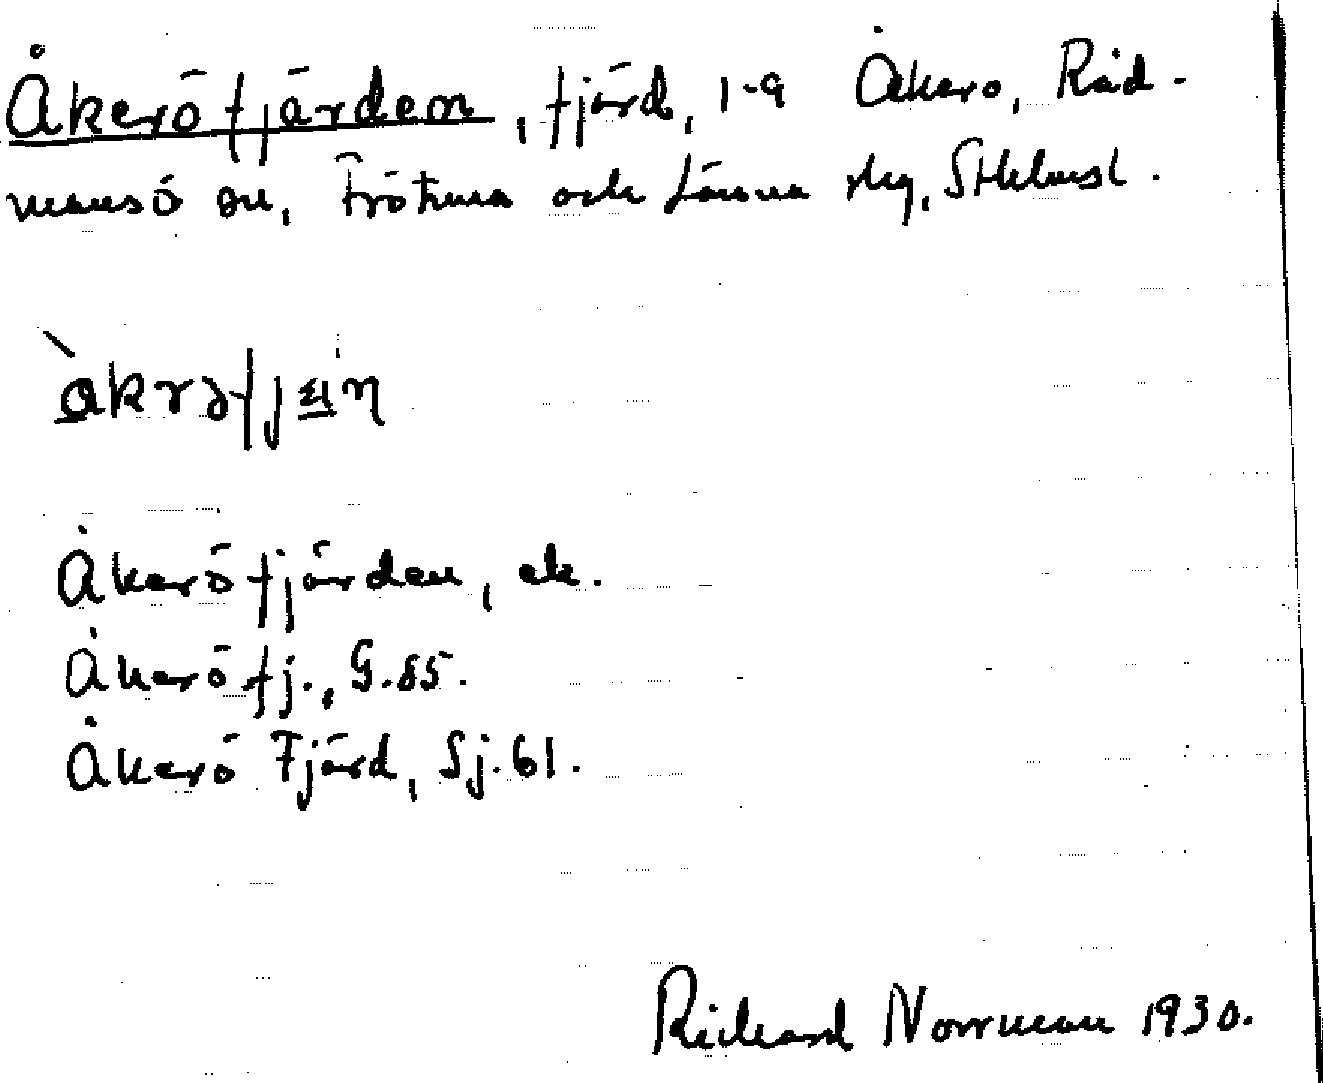 Åkeröfjärden, fjärd, 1-9 Åkerö, Råd-
mansö sn, Frötuna och Länna skg, Sthlmsl.
Åkeröfjärden, ek.
Åkerö fj., G.85.
Åkerö Fjärd, Sj.61.
Rickard Norrman 1930.